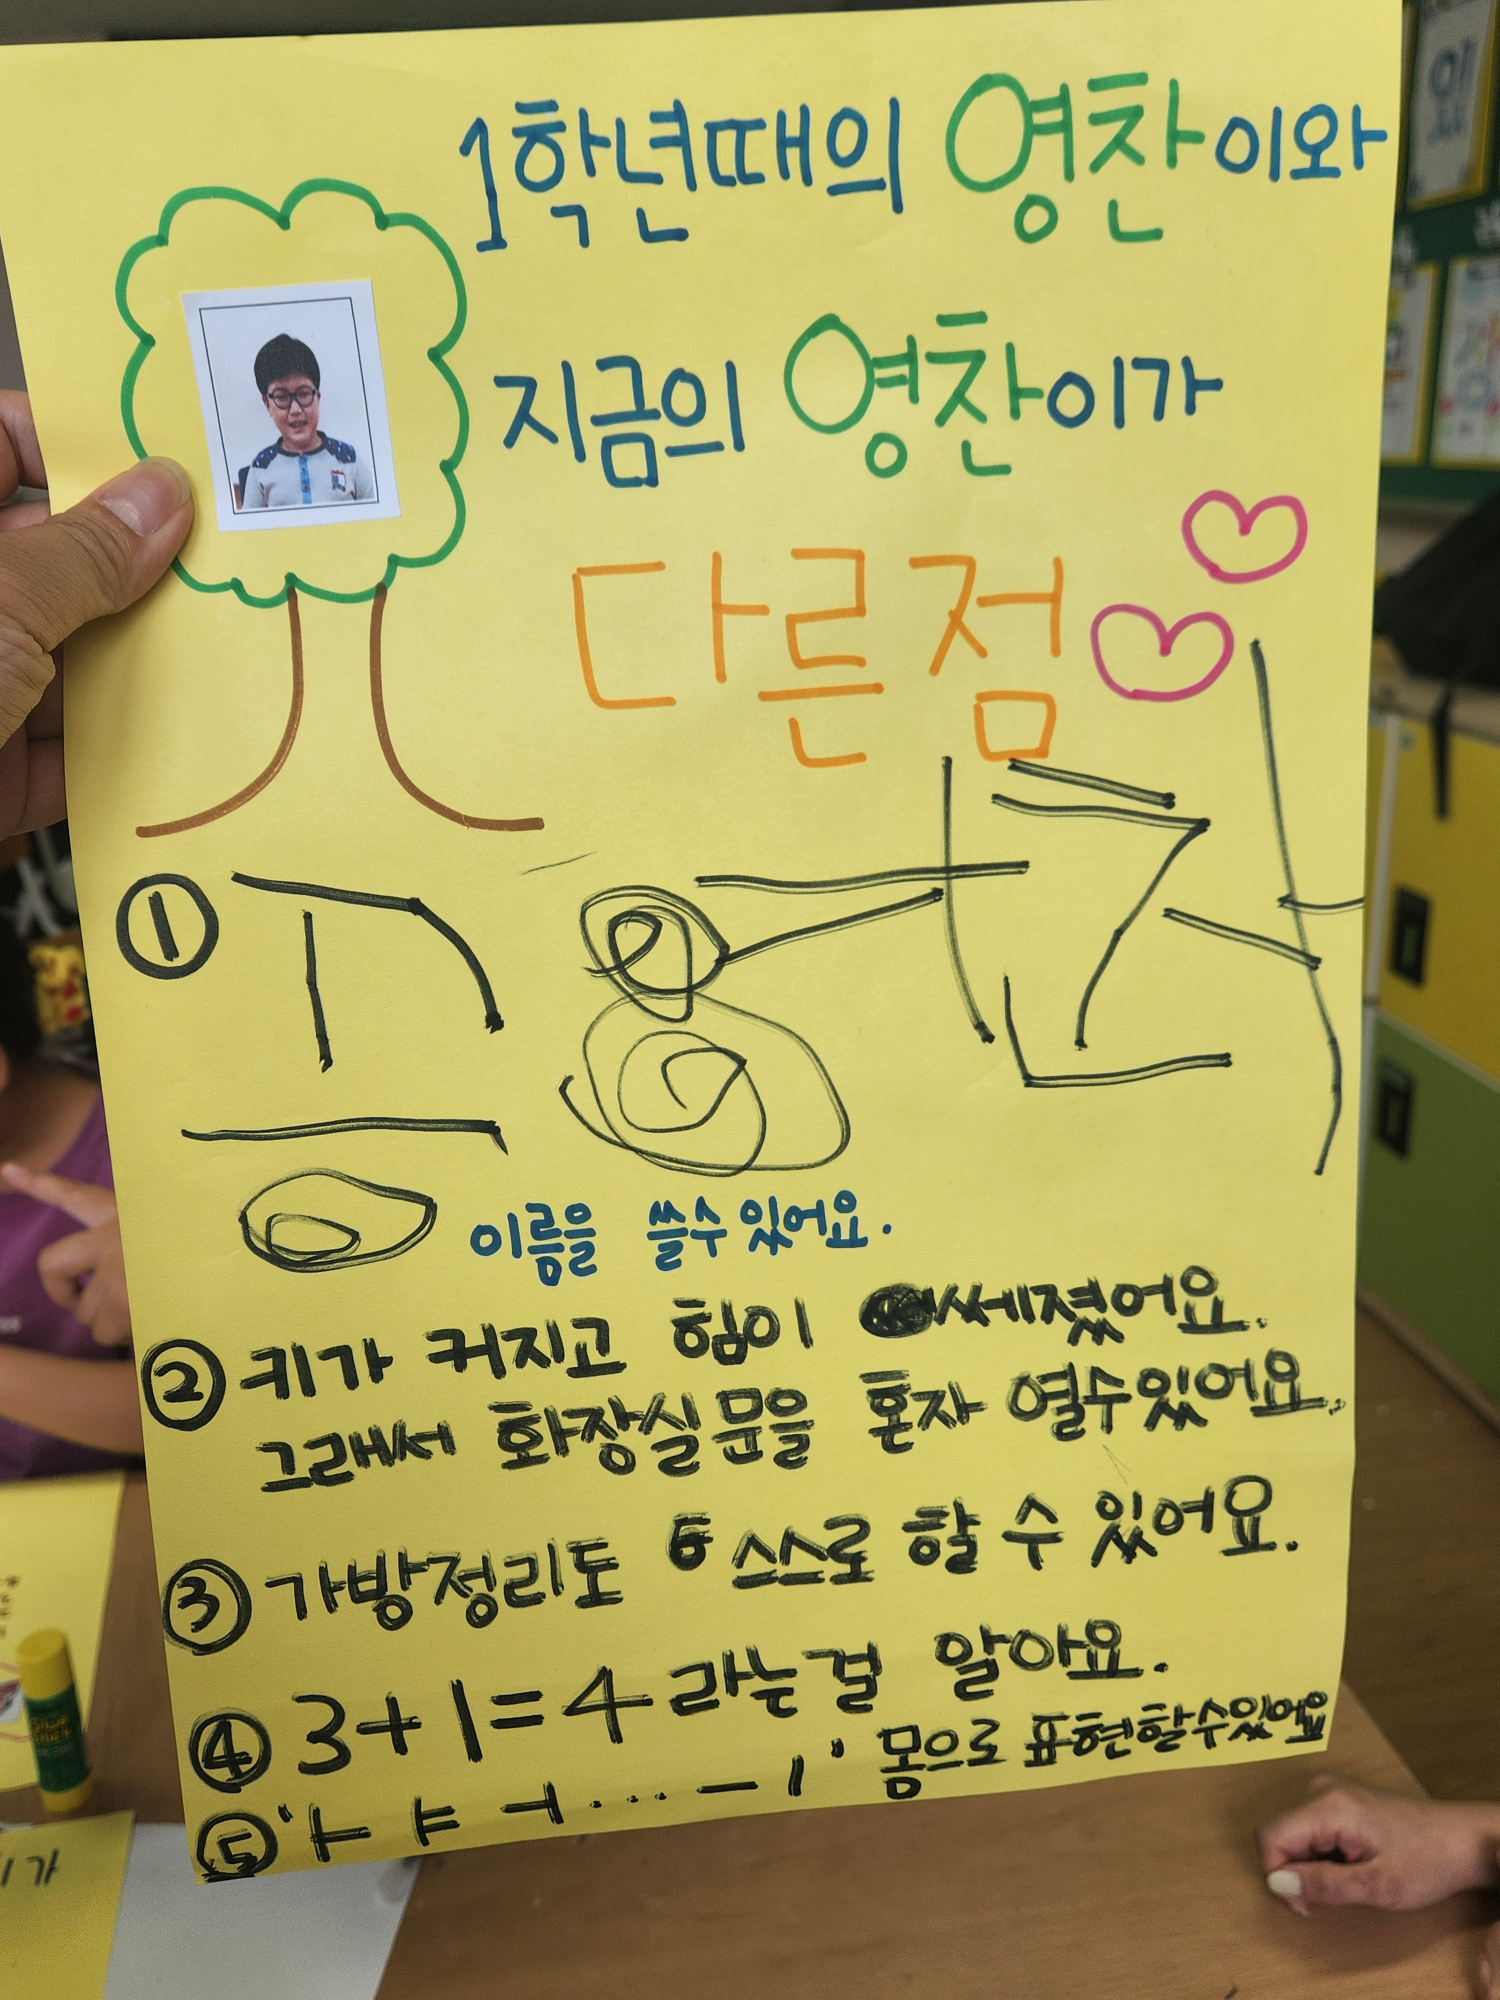 1학년때의 영찬이와
지금의 영찬이가
다른점
① 강영찬
이름을 쓸수있어요.
② 키가 커지고 힘이 쎄졌어요.
그래서 화장실문을 혼자 열수있어요.
③ 가방정리도 스스로 할 수 있어요.
④ 3+1=4 라는걸 알아요.
⑤ 'ㅏ ㅑ ㅓ ... ㅡ ㅣ' 몸으로 표현할수있어요